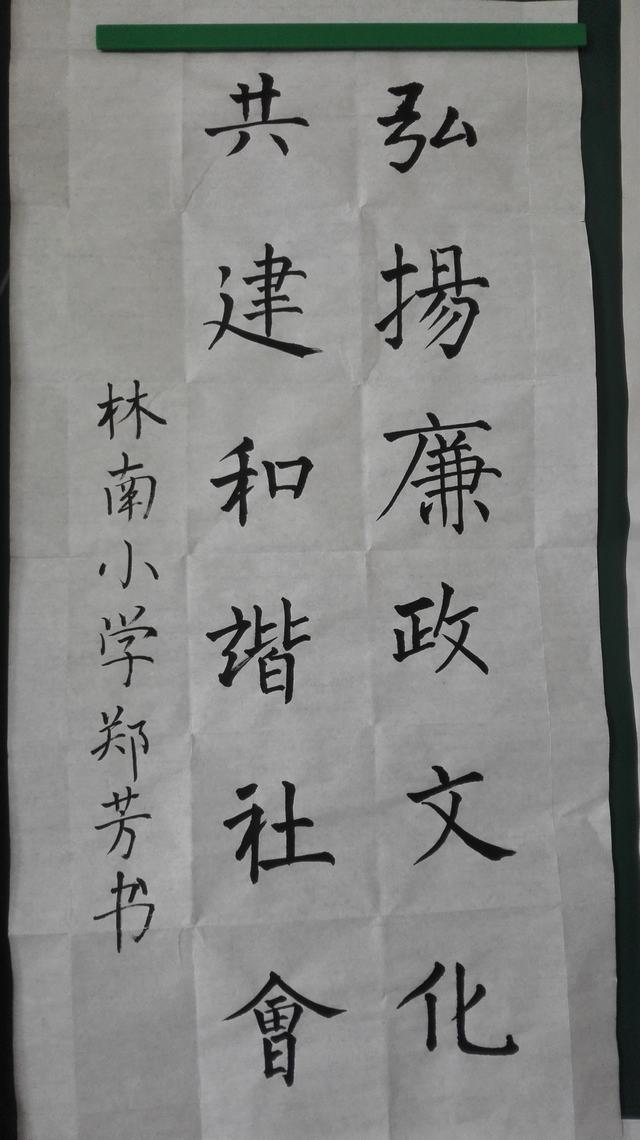 弘揚廉政文化
共建和諧社會
林南小学郑芳书